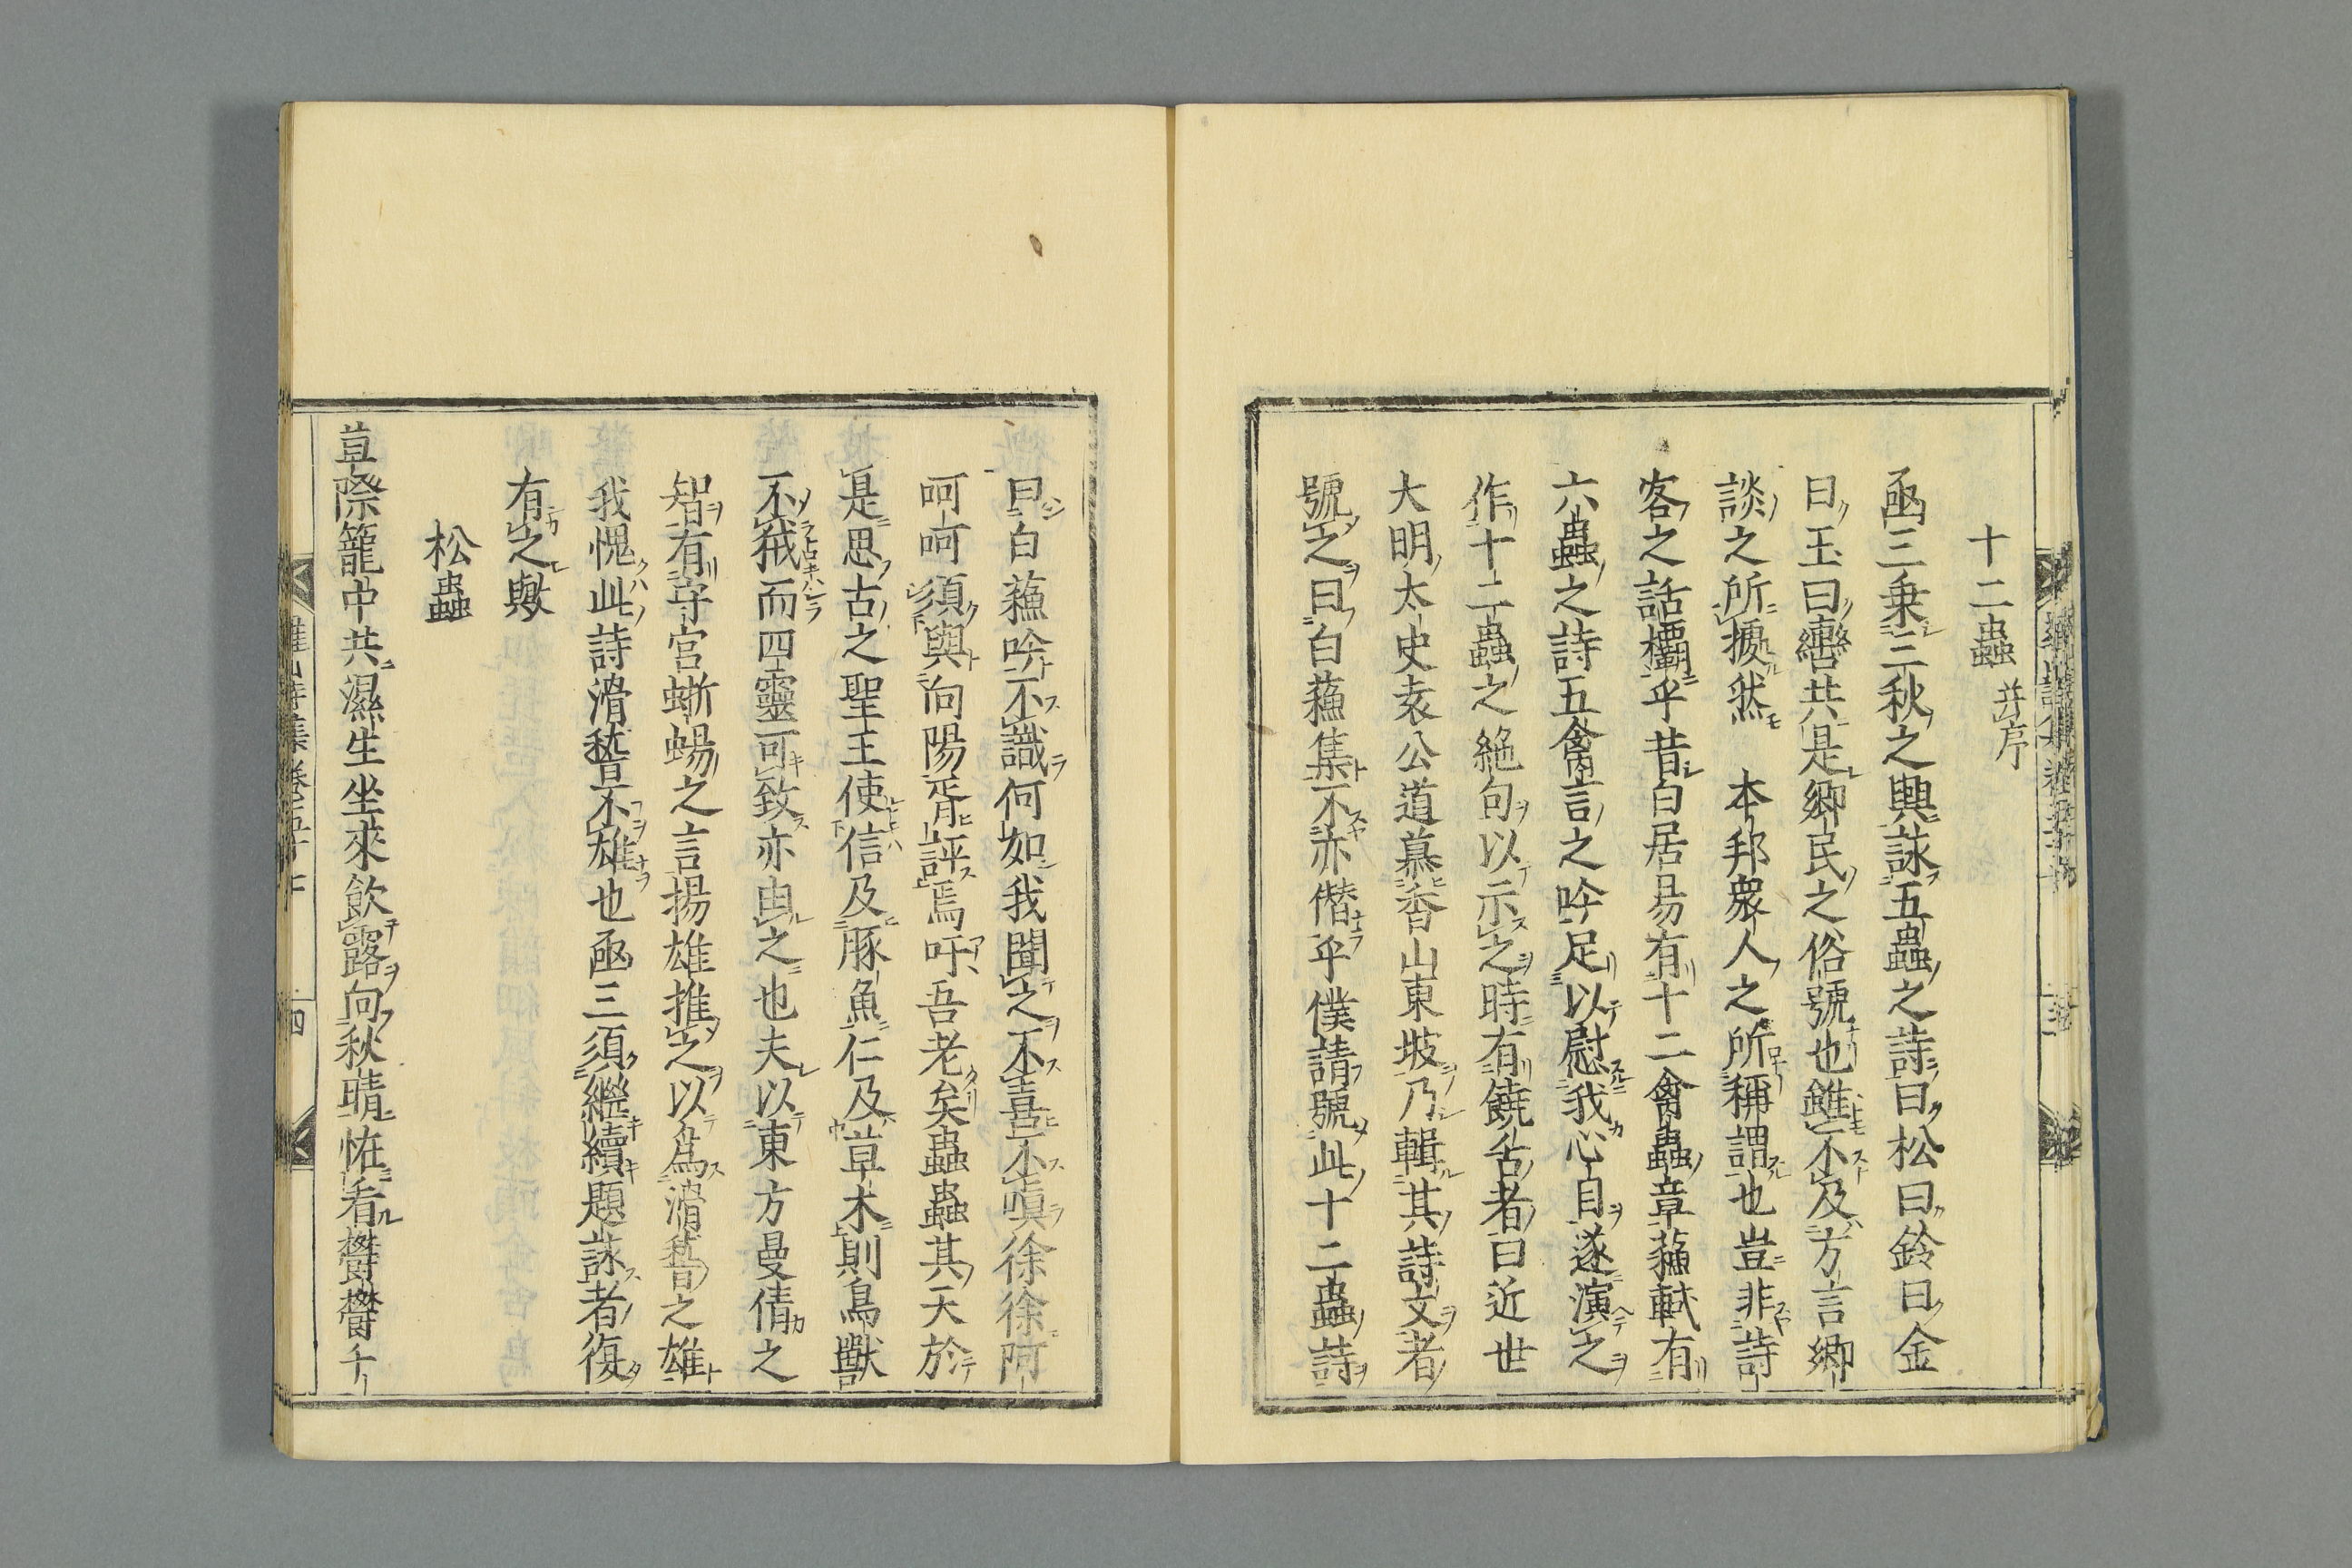 十二蟲 并序
凾三乗三秋之興詠五蟲之詩曰松曰鈴曰金
曰玉曰轡共是郷民之俗號也雖不及方言郷
談之所據然 本邦衆人之所稱謂也豈非詩
客之話欛乎昔白居易有十二禽蟲章蘓軾有
六蟲之詩五禽言之吟足以慰我心自遂演之
作十二蟲之絶句以示之時有饒舌者曰近世
大明太史袁公道慕香山東坡乃輯其詩文者
號之曰白蘓集不亦僭乎僕請號此十二蟲詩
曰白蘓吟不識何如我聞之不喜不嗔徐徐阿
呵呵須與向陽胥評焉吁吾老矣蟲蟲其天於
是思古之聖王使信及豚魚仁及草木則鳥獸
不𤝞而四靈可致亦由之也夫以東方曼倩之
智有守宮蜥蜴之言揚雄推之以爲滑稽之雄
我愧此詩滑稽不雄也凾三須繼續題詠者復
有之歟
松蟲
荳際籠中共濕生坐來飲露向秋晴恠看鬱鬱千
羅山詩集卷五十七
四